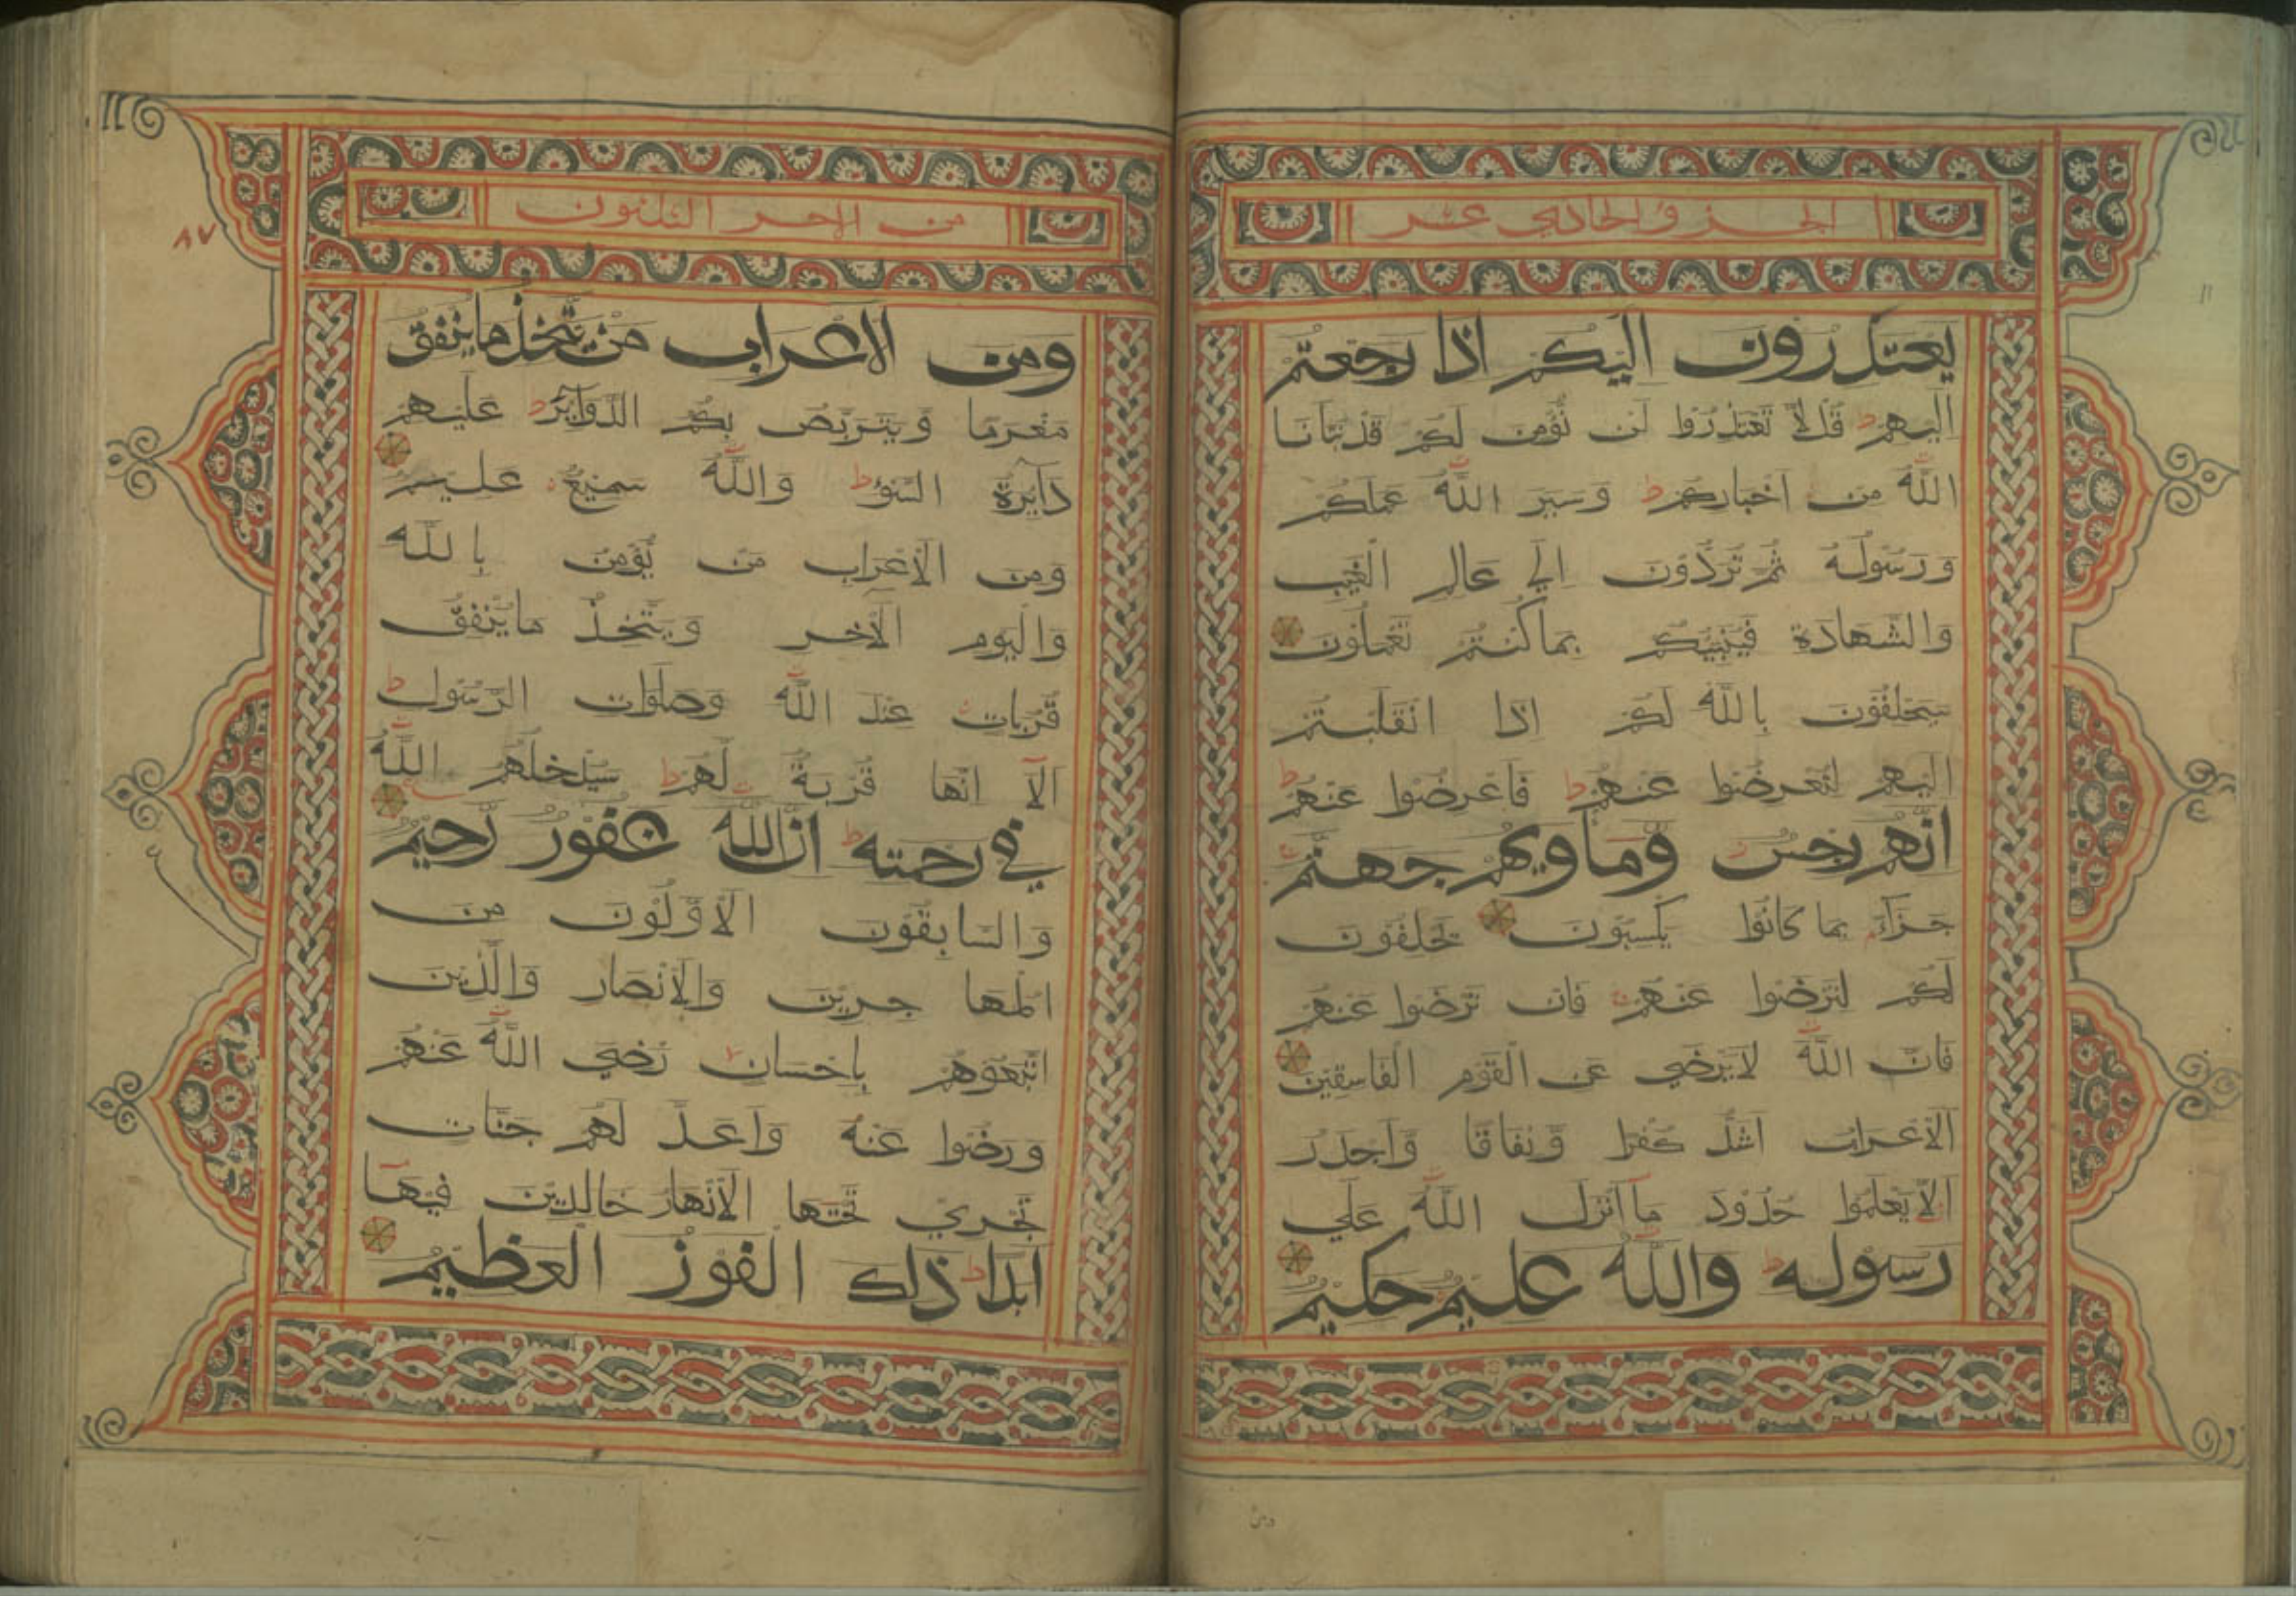 الجزؤ الحادي عشر
يعتذرون اليكم اذا رجعتم
اليهم ط قل لا تعتذروا لن نؤمن لكم قد نبانا
الله من اخباركم ط وسير الله عملكم
ورسوله ثم تردون الي عالم الغيب
والشهادة فينبيكم بما كنتم تعملون
سيحلفون بالله لكم اذا انقلبتم
اليهم لتعرضوا عنهم ط فاعرضوا عنهم ط
انهم رجس وماويهم جهنم
جزاء بما كانوا يكسبون يحلفون
لكم لترضوا عنهم فان ترضوا عنهم
فان الله لا يرضي عن القوم الفاسقين
الاعراب اشد كفرا ونفاقا واجدر
الا يعلموا حدود ما انزل الله علي
رسوله ط والله عليم حكيم
من الاجز الثلثون
٨٧
ومن الاعراب من يتخذ ما ينفق
مغرما ويتربص بكم الدوائر ط عليهم
دايرة السوء ط والله سميع عليم
ومن الاعراب من يؤمن بالله
واليوم الآخر ويتخذ ما ينفق
قربات عند الله وصلوات الرسول ط
الا انها قربة لهم ط سيدخلهم الله
في رحمته ط ان الله غفور رحيم
والسابقون الاولون من
المها جرين والانصار والذين
اتبعوهم باحسان رضي الله عنهم
ورضوا عنه واعد لهم جنات
تجري تحتها الانهار خالدين فيها
ابدا ط ذلك الفوز العظيم